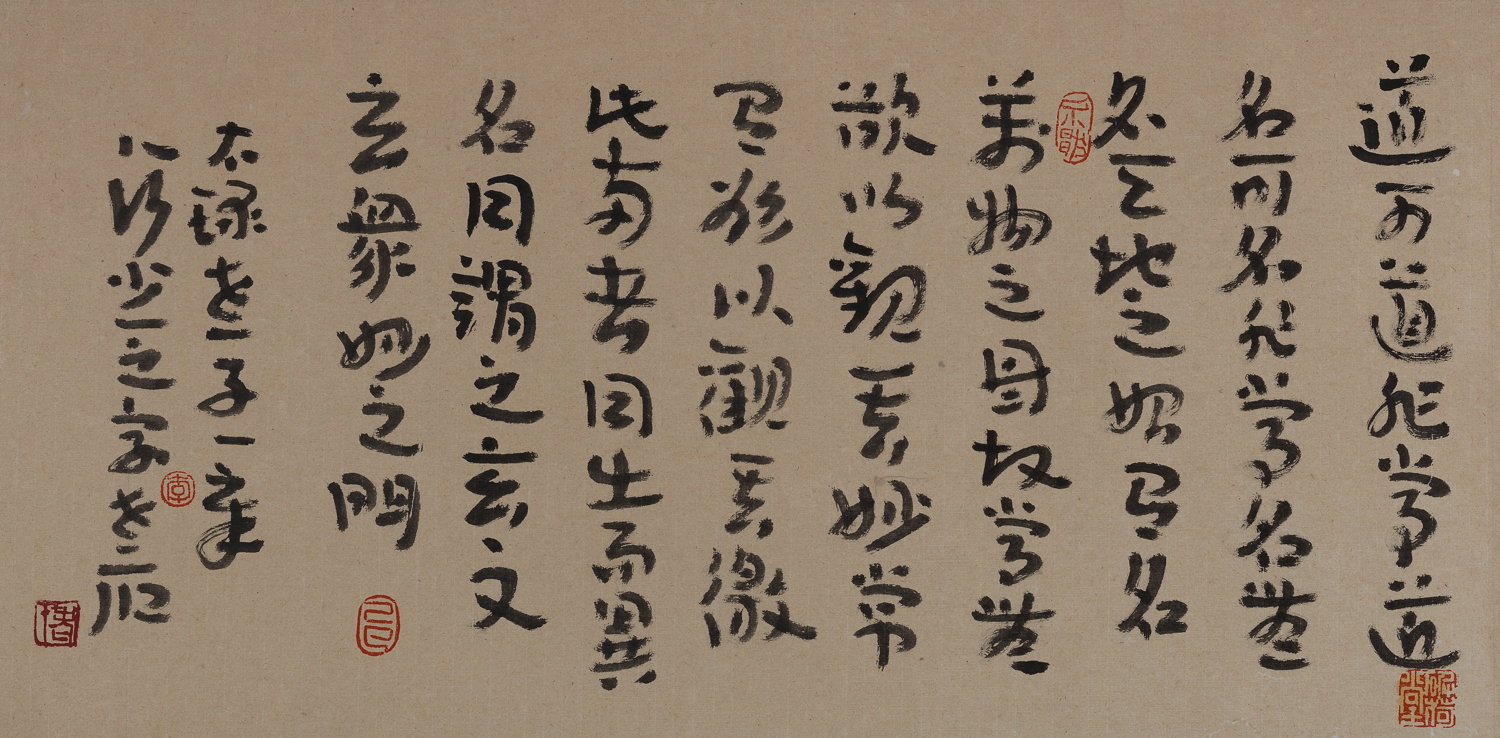 道可道非常道
名可名非常名無
名天地之始有名
萬物之母故常無
欲以觀其妙常
有欲以觀其徼
此兩者同出而異
名同謂之玄之又
玄衆妙之門
右録老子一章